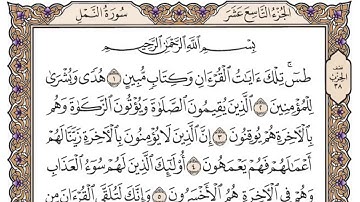 الجُزْءُ التَّاسِعَ عَشَرَ
سُورَةُ النَّمْلِ
بِسْمِ اللَّهِ الرَّحْمَٰنِ الرَّحِيمِ
طسٓ ۚ تِلْكَ ءَايَٰتُ ٱلْقُرْءَانِ وَكِتَابٍ مُّبِينٍ ١ هُدًى وَبُشْرَىٰ
لِلْمُؤْمِنِينَ ٢ ٱلَّذِينَ يُقِيمُونَ ٱلصَّلَوٰةَ وَيُؤْتُونَ ٱلزَّكَوٰةَ وَهُم
بِٱلْءَاخِرَةِ هُمْ يُوقِنُونَ ٣ إِنَّ ٱلَّذِينَ لَا يُؤْمِنُونَ بِٱلْءَاخِرَةِ زَيَّنَّا لَهُمْ
أَعْمَٰلَهُمْ فَهُمْ يَعْمَهُونَ ٤ أُو۟لَٰٓئِكَ ٱلَّذِينَ لَهُمْ سُوٓءُ ٱلْعَذَابِ
وَهُمْ فِى ٱلْءَاخِرَةِ هُمُ ٱلْأَخْسَرُونَ ٥ وَإِنَّكَ لَتُلَقَّى ٱلْقُرْءَانَ مِن